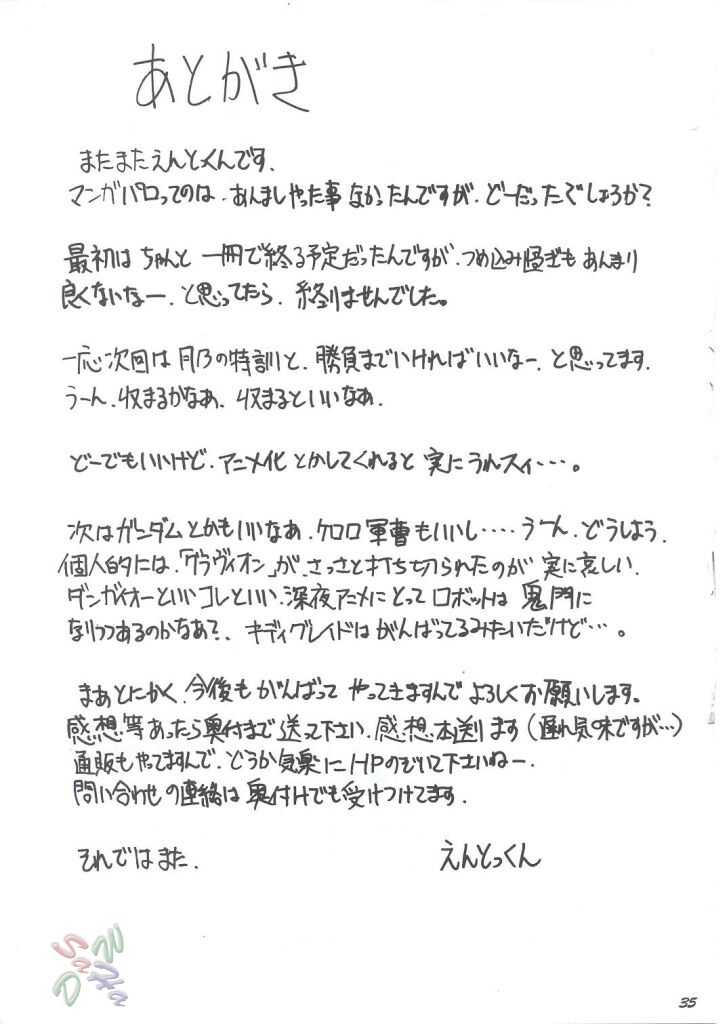 あとがき
またまたえんとっくんです.
マンガパロってのは.あんましやった事なかったんですが.どーだったでしょうか?
最初はちゃんと一冊で終る予定だったんですが.つめ込み過ぎもあんまり
良くないなー.と思ってたら.終りませんでした。
一応次回は月乃の特訓と.勝負までいければいいなー.と思ってます.
うーん.収まるかなあ、収まるといいなあ.
どーでもいいけど.アニメ化とかしてくれると実にうれスィ・・・。
次はガンダムとかもいいなあ.ケロロ軍曹もいいし・・・・うーん.どうしよう.
個人的には.「グラヴィオン」が.さっさと打ち切られたのが実に哀しい.
ダンガイオーといいコレといい.深夜アニメにとってロボットは鬼門に
なりつつあるのかなあ?、キディグレイドはがんばってるみたいだけど・・・。
まあとにかく.今後もがんばってやってきますんでよろしくお願いします。
感想等あったら奥付まで送って下さい.感想本送ります(遅れ気味ですが・・・)
通販もやってますんで.どうか気楽にHPのぞいて下さいねー.
問い合わせの連絡は奥付けでも受けつけてます.
それではまた.
えんとっくん
35